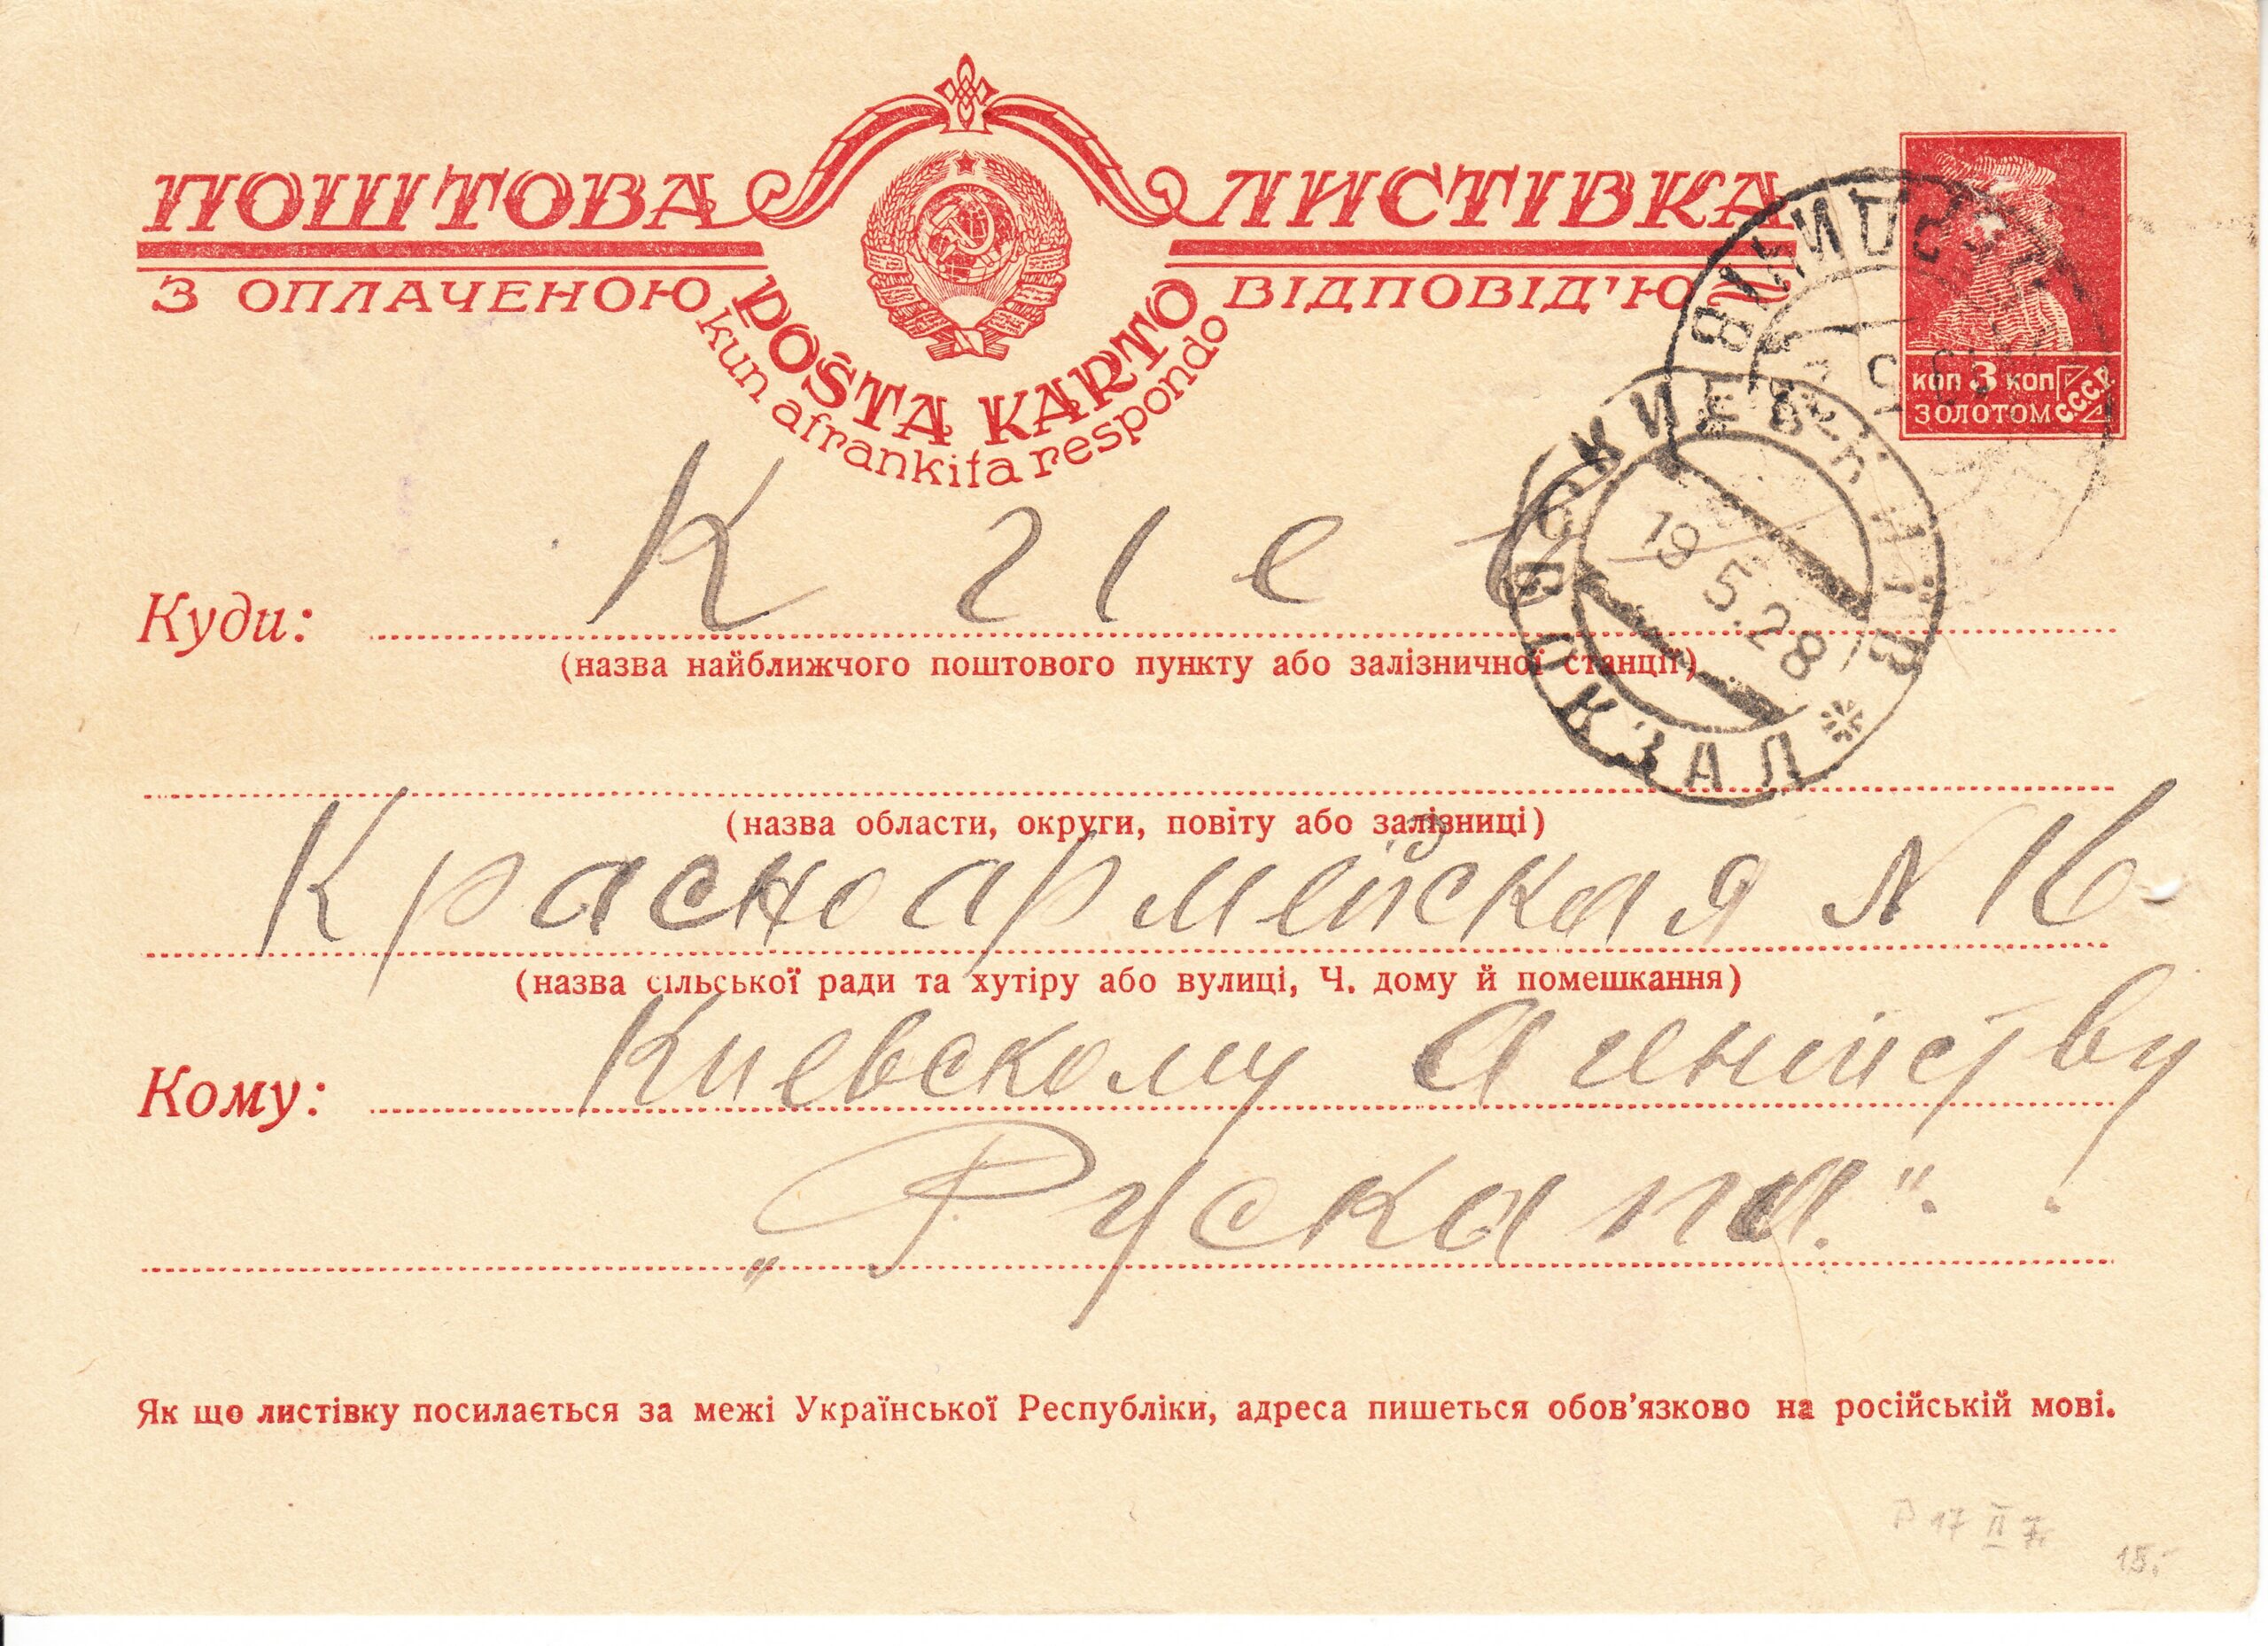 ПОШТОВА ЛИСТІВКА
З ОПЛАЧЕНОЮ ВІДПОВІД'Ю
POŜTA KARTO
kun afrankita respondo
коп 3 коп
ЗОЛОТОМ С.С.С.Р.
КИЕВ КИЇВ
19 5.28
ВОКЗАЛ
Куди: Кгіев
(назва найближчого поштового пункту або залізничної станції)
(назва области, округи, повіту або залізниці)
Красноармейская N 16
(назва сільської ради та хутіру або вулиці, Ч. дому й помешкання)
Кому: Киевскому Агентству
„Рускапа".
Як що листівку посилається за межі Української Республіки, адреса пишеться обов'язково на російській мові.
15.-